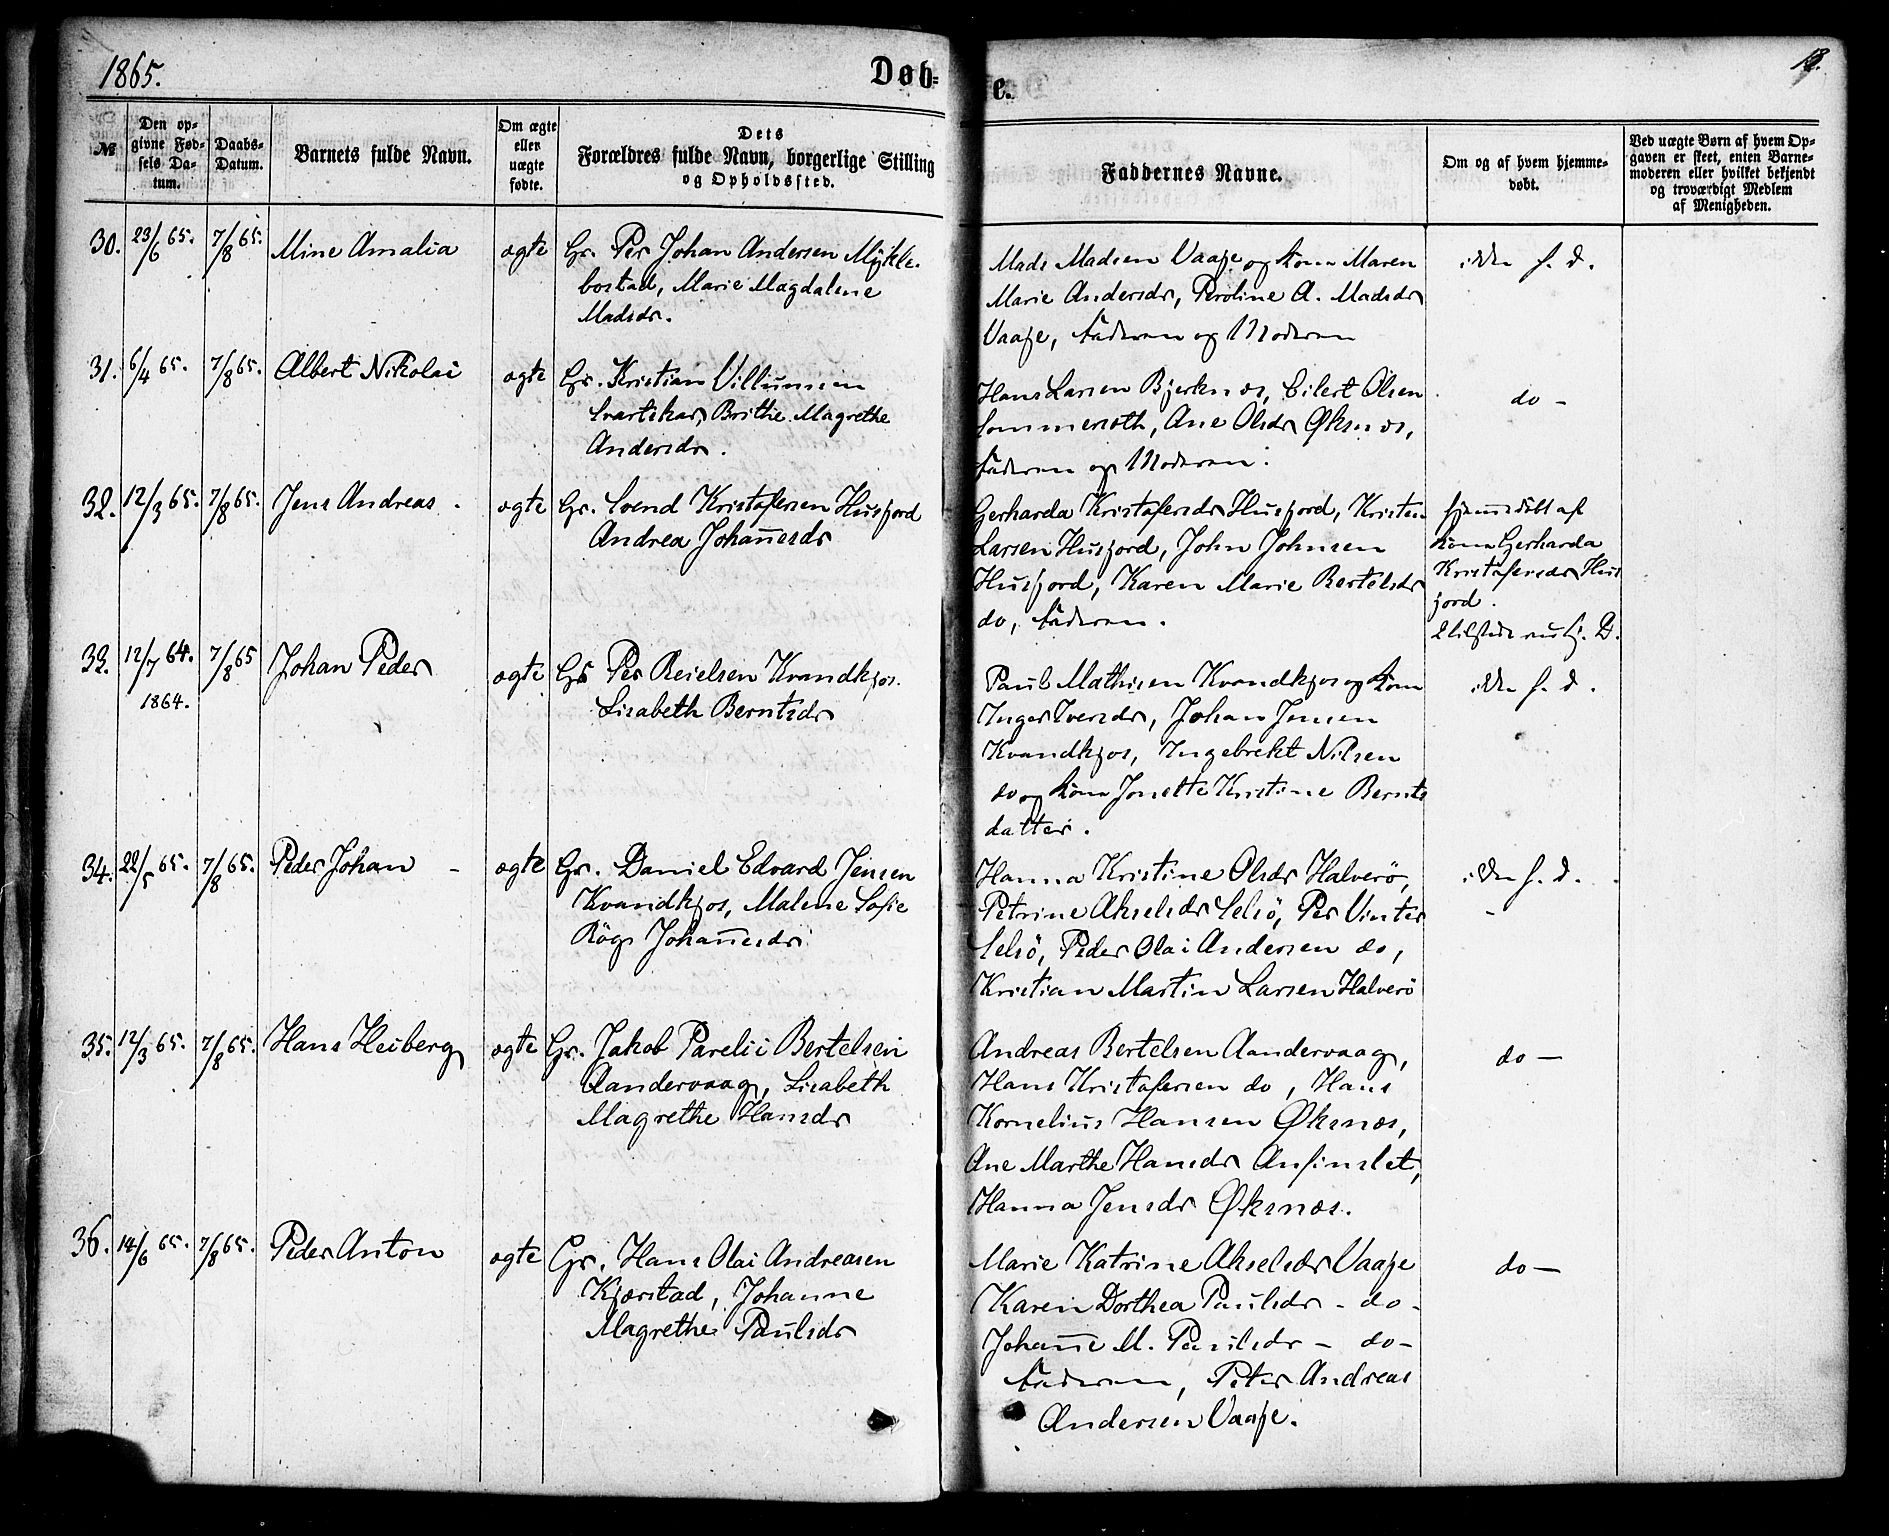 1865.
Døb-
e.
18.
№
Den op-
givne Fød-
sels Da-
tum.
Daabs-
Datum.
Barnets fulde Navn.
Om ægte
eller
uægte
fødte.
Dets
Forældres fulde Navn, borgerlige Stilling
og Opholdssted.
Faddernes Navne.
Om og af hvem hjemme-
døbt.
Ved uægte Børn af hvem Op-
gaven er skeet, enten Barne-
moderen eller hvilket bekjendt
og troværdigt Medlem
af Menigheden.
30. 23/6 65. 7/8 65. Mine Amalia ægte Gr. Per Johan Andersen Mykle-
bostad, Marie Magdalene
Madsdr.
Mads Madsen Vaaje og Kone Maren
Marie Andersdr, Peroline A. Madsdr
Vaaje, Faderen og Moderen
ikke h. d.
31. 6/4 65. 7/8 65. Albert Nikolai ægte Gr. Kristian Villumsen
Svartskar, Brithe Magrethe
Andersdr.
Hans Larsen Bjerknæs, Eilert Olsen
Sommeræth, Ane Olsdr Øksnæs,
Faderen og Moderen.
do -
32. 12/3 65. 7/8 65. Jens Andreas. ægte Gr. Svend Kristofersen Husjord
Andrea Johannesdr
Gerharda Kristofersdr Husjord, Kristen
Larsen Husjord, John Johnsen
Husjord, Karen Marie Bertelsdr
do, Faderen.
hjemmedøbt af
Kone Gerharda
Kristofersdr Hus
jord.
33. 12/7 64. 7/8 65 Johan Peder ægte Gr Per Reielsen Kvandkjos.
1864.
Lisabeth Berntsdr
Paul Mathisen Kvandkjos og Kone
Inger Iversdr, Johan Jensen
Kvandkjos, Ingebrekt Nilsen
do og Kone Jonette Kristine Bernts
datter.
ikke h. d.
34. 22/5 65. 7/8 65. Peder Johan - ægte Gr. Daniel Edvard Jensen
Kvandkjos, Malene Sofie
Røgs Johannesdr
Hanna Kristine Olsdr Halverø,
Petrine Akselsdr Selsø, Per Vinter
Selsø, Peder Olai Andersen do,
Kristian Martin Larsen Halverø
ikke h. d.
35. 12/3 65. 7/8 65. Hans Heiberg ægte Gr. Jakob Parelii Bertelsen
Aandervaag, Lisabeth
Magrethe Hansdr
Andreas Bertelsen Aandervaag,
Hans Kristofersen do, Hans
Kornelius Hansen Øksnæs,
Ane Marthe Hansdr Anfinslet,
Hanna Jensdr Øksnæs.
do -
36. 14/6 65. 7/8 65. Peder Anton ægte Gr. Hans Olai Andreasen
Kjærstad, Johanne
Magrethe Paulsdr
Marie Katrine Akselsdr Vaaje
Karen Dorthea Paulsdr - do -
Johanne M. Paulsdr - do -
Faderen, Peter Andreas
Andersen Vaaje.
do -